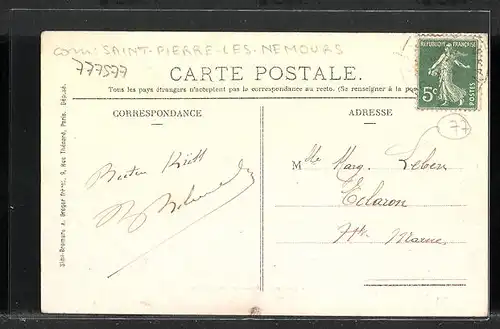 com: SAINT-PIERRE-LES-NEMOURS
777577
CARTE POSTALE.
Tous les pays étrangers n'acceptent pas la correspondance au recto. (Se renseigner à la pos
RÉPUBLIQUE FRANÇAISE
5c
POSTES
CORRESPONDANCE
ADRESSE
77
Mlle Marg. Leben
Eclaron
Hte Marne
9, Rue Thénard, Paris. Déposé.